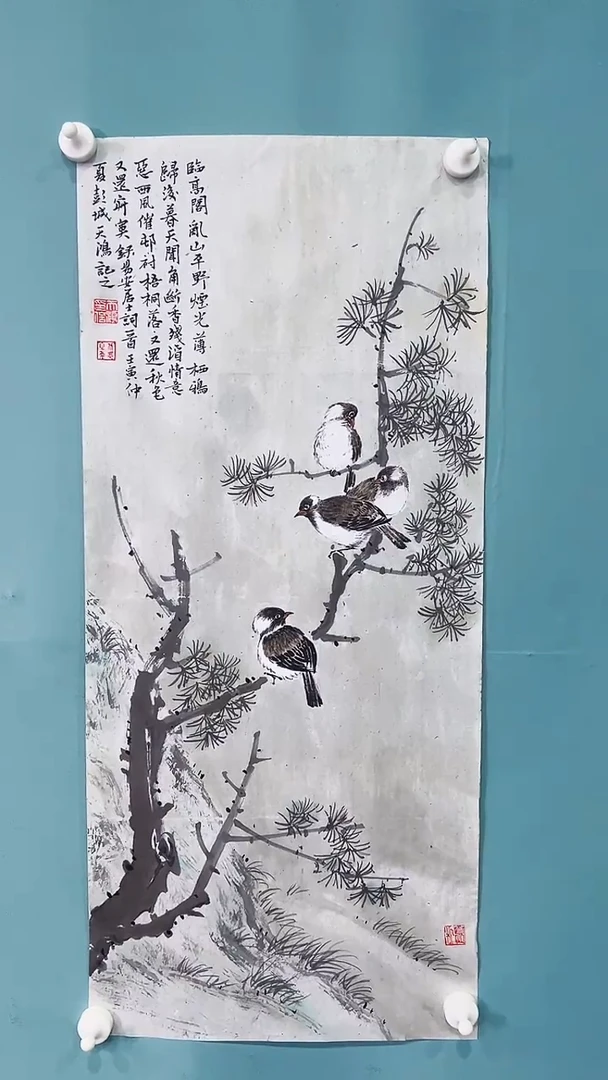 臨高閣亂山平野煙光薄栖鴉
歸後暮天聞角斷香殘酒情意
惡西風催衬梧桐落又還秋色
又還寂寞錄易安居士詞一首壬寅仲
夏彭城天鴻記之